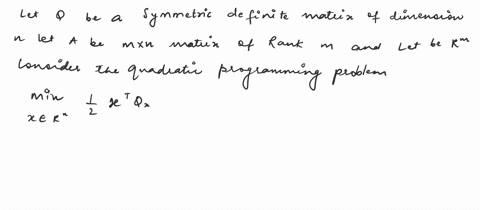 Let Q be a Symmetric definite matrix of dimension
n let A be mxn matrix of Rank m and Let be R^m
Consider the quadratic programming problem
min 1/2 x^T Qx
x∈R^n